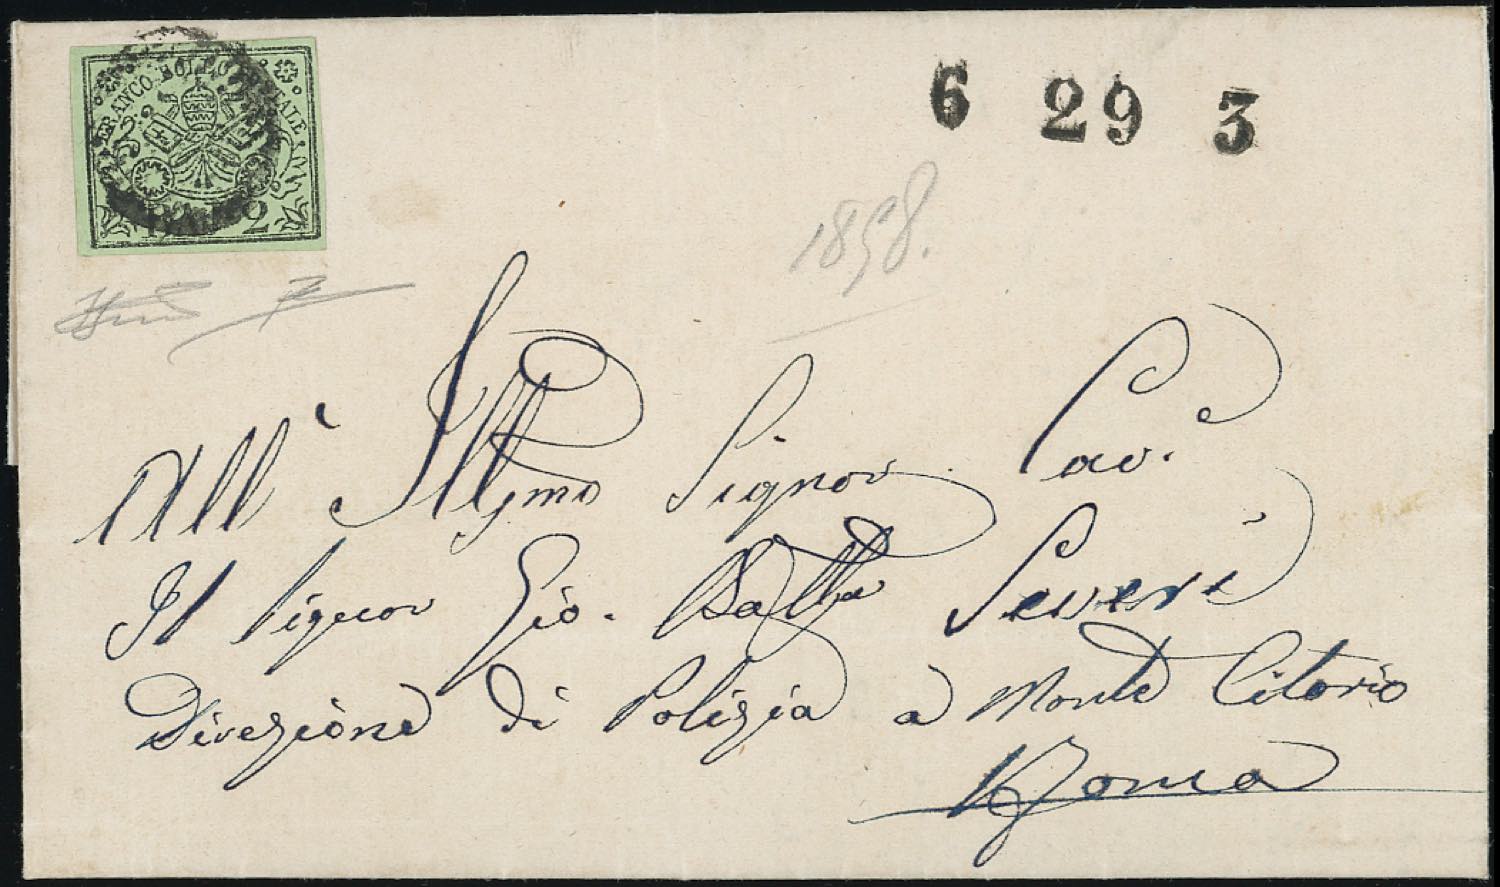 FRANCO BOLLO POSTALE
BAJ 2
6 29 3
1858.
All' Illmo Signor Cav.e
Il Signor Gio. Batta Severi
Direzione di Polizia a Monte Citorio
Roma